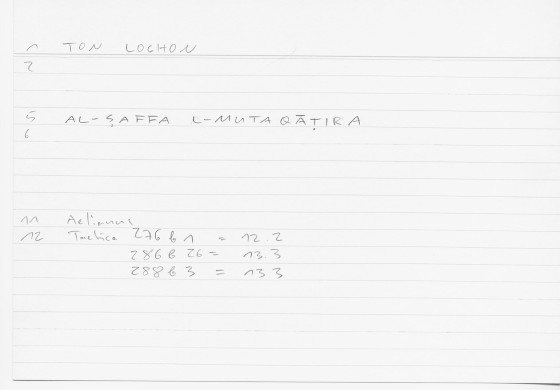 1 TON LOCHON
2
5 AL-ṢAFFA L-MUTAQĀṬIRA
6
11 Aelianus
12 Tactica 276 b 1 = 12.2
286 b 26 = 13.3
288 b 3 = 13.3